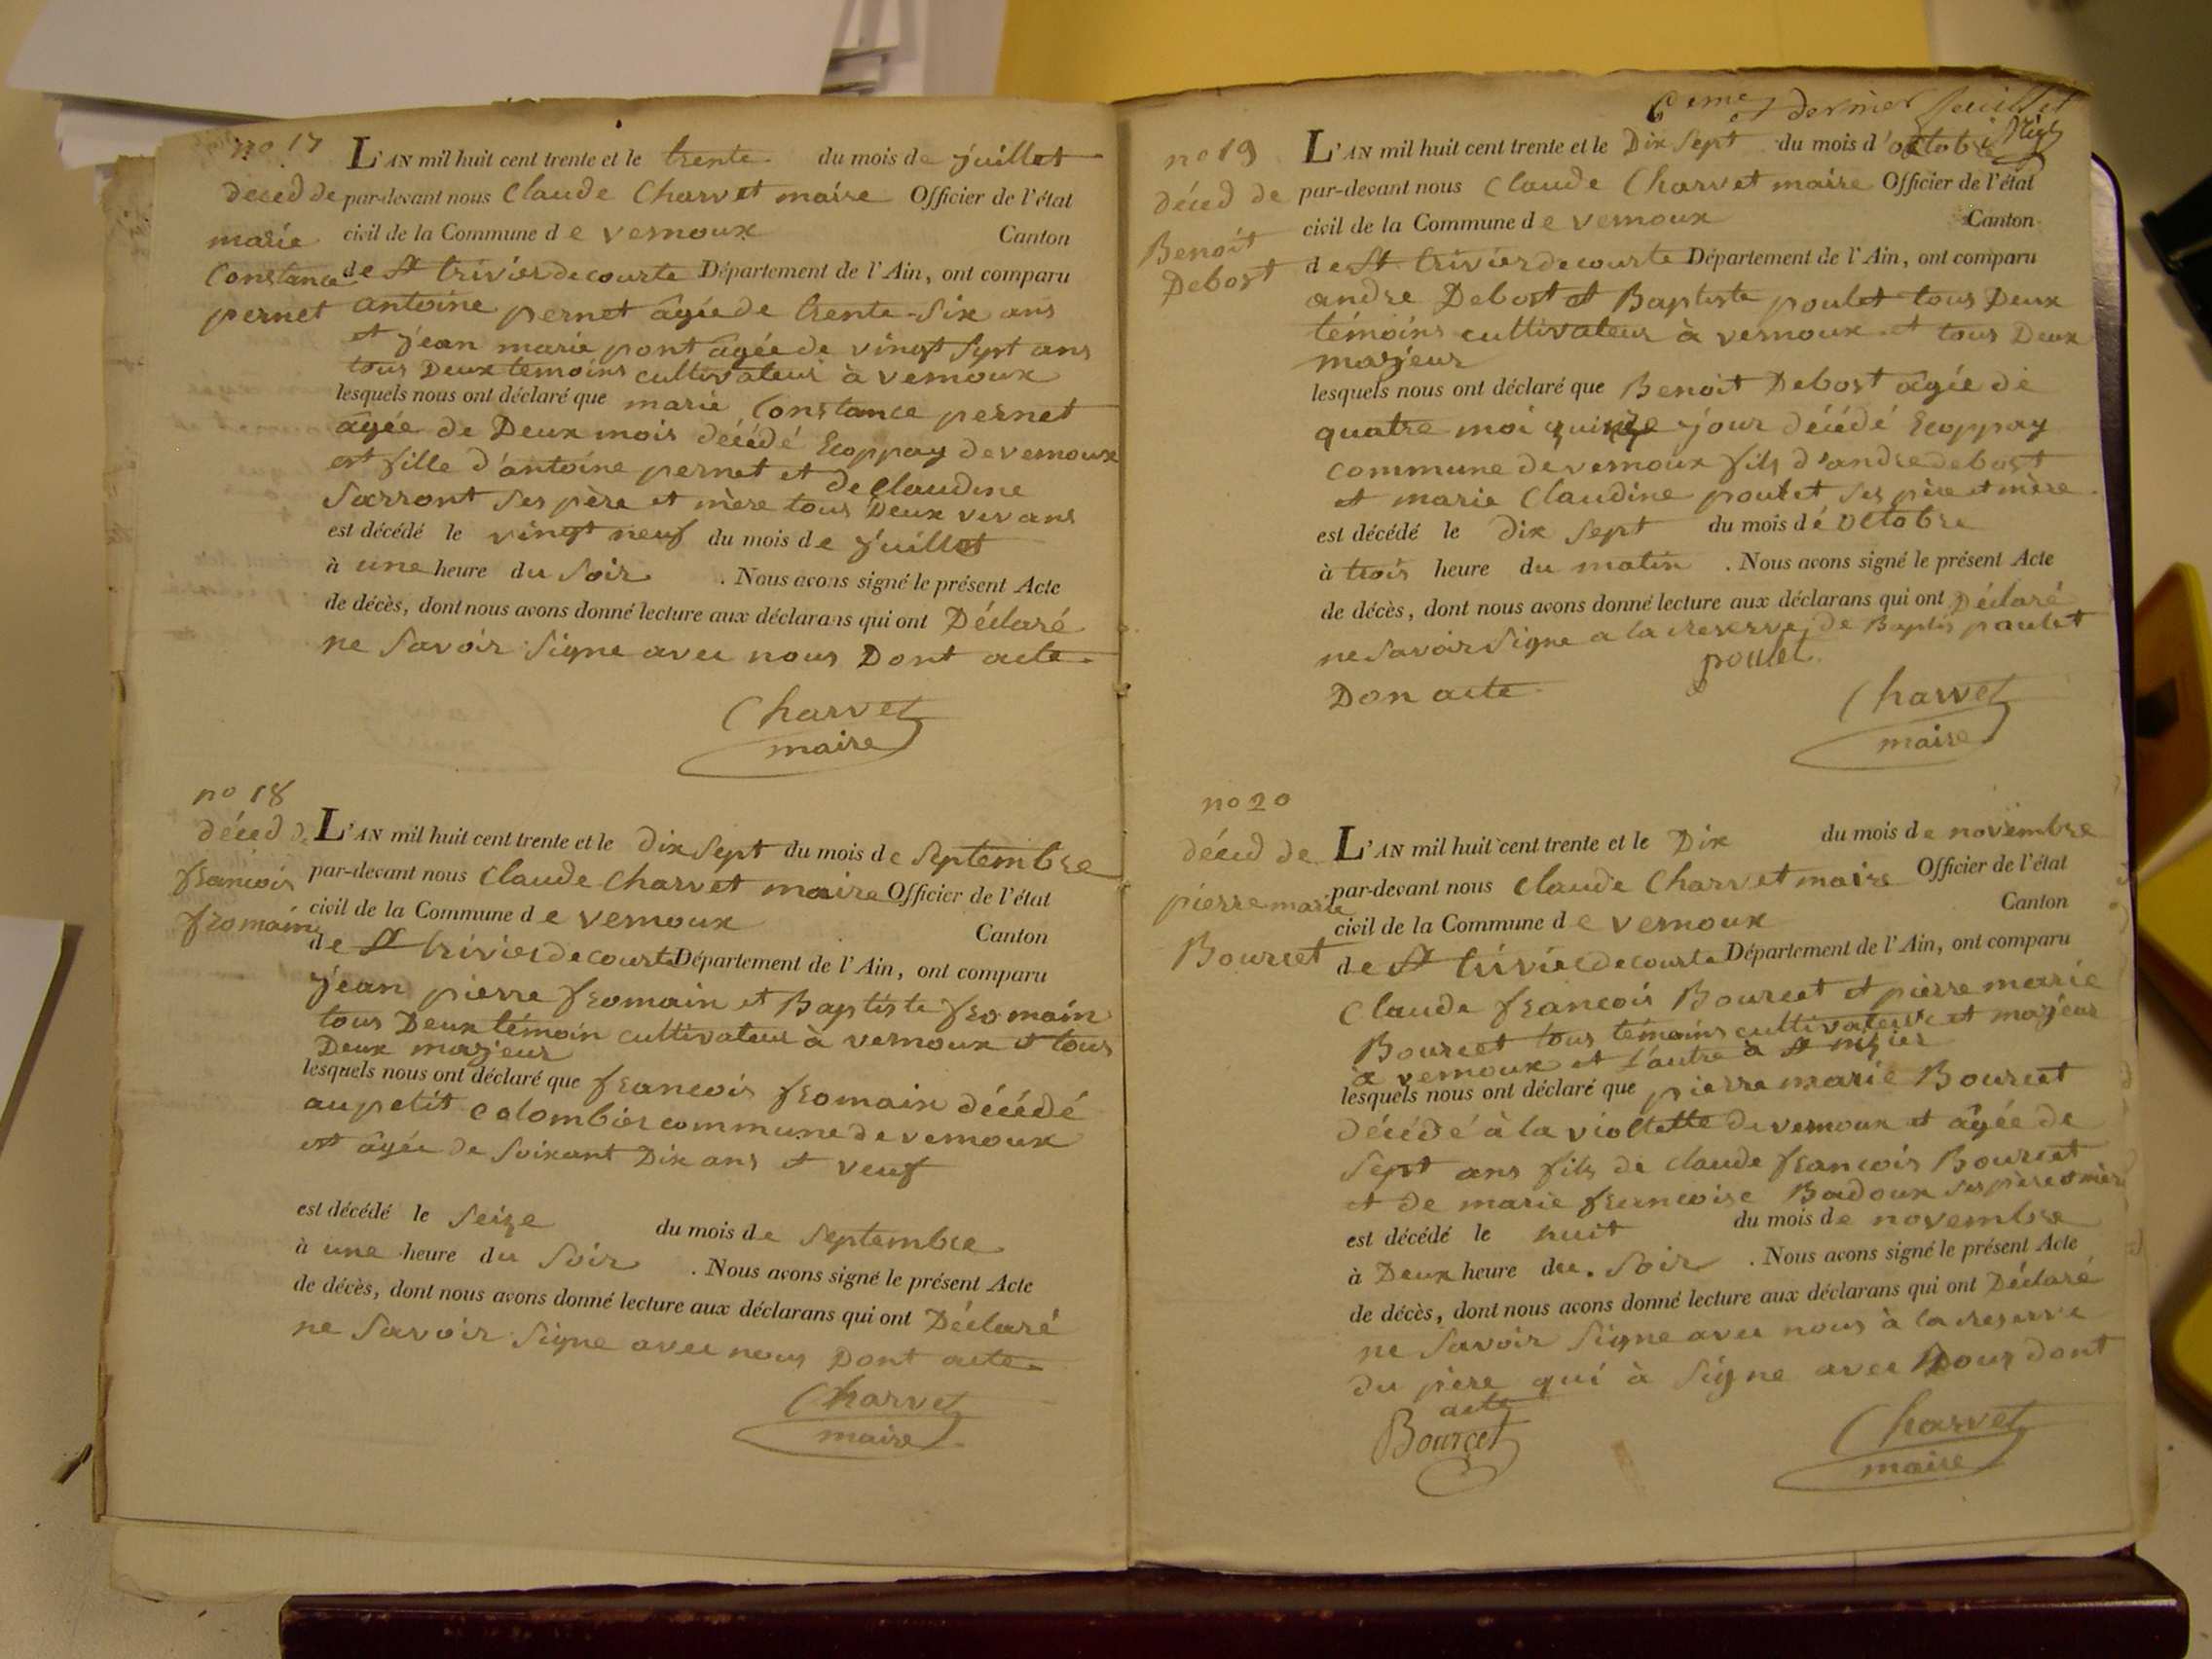 no 17
deced de
marie
Constance
pernet
L'AN mil huit cent trente et le trente du mois de juillet
par-devant nous Claude Charvet maire Officier de l'état
civil de la Commune de vernoux Canton
de St trivier de courte Département de l'Ain, ont comparu
antoine pernet âgée de trente-six ans
et jean marie pont âgée de vingt sept ans
tous Deux temoins cultivateur à vernoux
lesquels nous ont déclaré que marie Constance pernet
âgée de Deux mois décédé Ecoppay de vernoux
est fille d'antoine pernet et de Claudine
Sarront ses père et mère tous Deux vivans
est décédé le vingt neuf du mois de juillet
à une heure du Soir . Nous avons signé le présent Acte
de décès, dont nous avons donné lecture aux déclarans qui ont Déclaré
ne Savoir Signe avec nous Dont acte
Charvet
maire
no 18
déced de
francois
fromain
L'AN mil huit cent trente et le dix sept du mois de Septembre
par-devant nous Claude Charvet maire Officier de l'état
civil de la Commune de vernoux Canton
de St trivier de courte Département de l'Ain, ont comparu
jean pierre fromain et Baptiste fromain
tous Deux témoin cultivateur à vernoux et tous
Deux majeur
lesquels nous ont déclaré que francois fromain décédé
au petit colombier commune de vernoux
et âgée de Soixant Dix ans et veuf
est décédé le Seize du mois de Septembre
à une heure du Soir . Nous avons signé le présent Acte
de décès, dont nous avons donné lecture aux déclarans qui ont Déclaré
ne Savoir Signe avec nous Dont acte
Charvet
maire
6eme et dernier feuillet
no 19
déced de
Benoit
Debost
L'AN mil huit cent trente et le Dix Sept du mois d'octobre
par-devant nous Claude Charvet maire Officier de l'état
civil de la Commune de vernoux Canton
de St trivier de courte Département de l'Ain, ont comparu
andre Debost et Baptiste poulet tous Deux
témoins cultivateur à vernoux et tous Deux
majeur
lesquels nous ont déclaré que Benoit Debost âgée de
quatre moi quinze jour décédé Ecoppay
commune de vernoux fils d'andre debost
et marie Claudine poulet ses père et mère
est décédé le dix sept du mois de octobre
à trois heure du matin . Nous avons signé le présent Acte
de décès, dont nous avons donné lecture aux déclarans qui ont Déclaré
ne Savoir Signe a la reserve de Baptis poulet
poulet
Don acte
Charvet
maire
no 20
déced de
pierre marie
Bourcet
L'AN mil huit cent trente et le Dix du mois de novembre
par-devant nous Claude Charvet maire Officier de l'état
civil de la Commune de vernoux Canton
de St trivier de courte Département de l'Ain, ont comparu
Claude francois Bourcet et pierre marie
Bourcet tous témoins cultivateur et majeur
a vernoux et l'autre à St
lesquels nous ont déclaré que pierre marie Bourcet
décédé à la viollette de vernoux et âgée de
Sept ans fils de claude francois Bourcet
et de marie francoise Badoux ses père et mère
est décédé le huit du mois de novembre
à Deux heure du Soir . Nous avons signé le présent Acte
de décès, dont nous avons donné lecture aux déclarans qui ont Déclaré
ne Savoir Signe avec nous à la reserve
du père qui à Signe avec Nous dont
acte
Bourcet
Charvet
maire